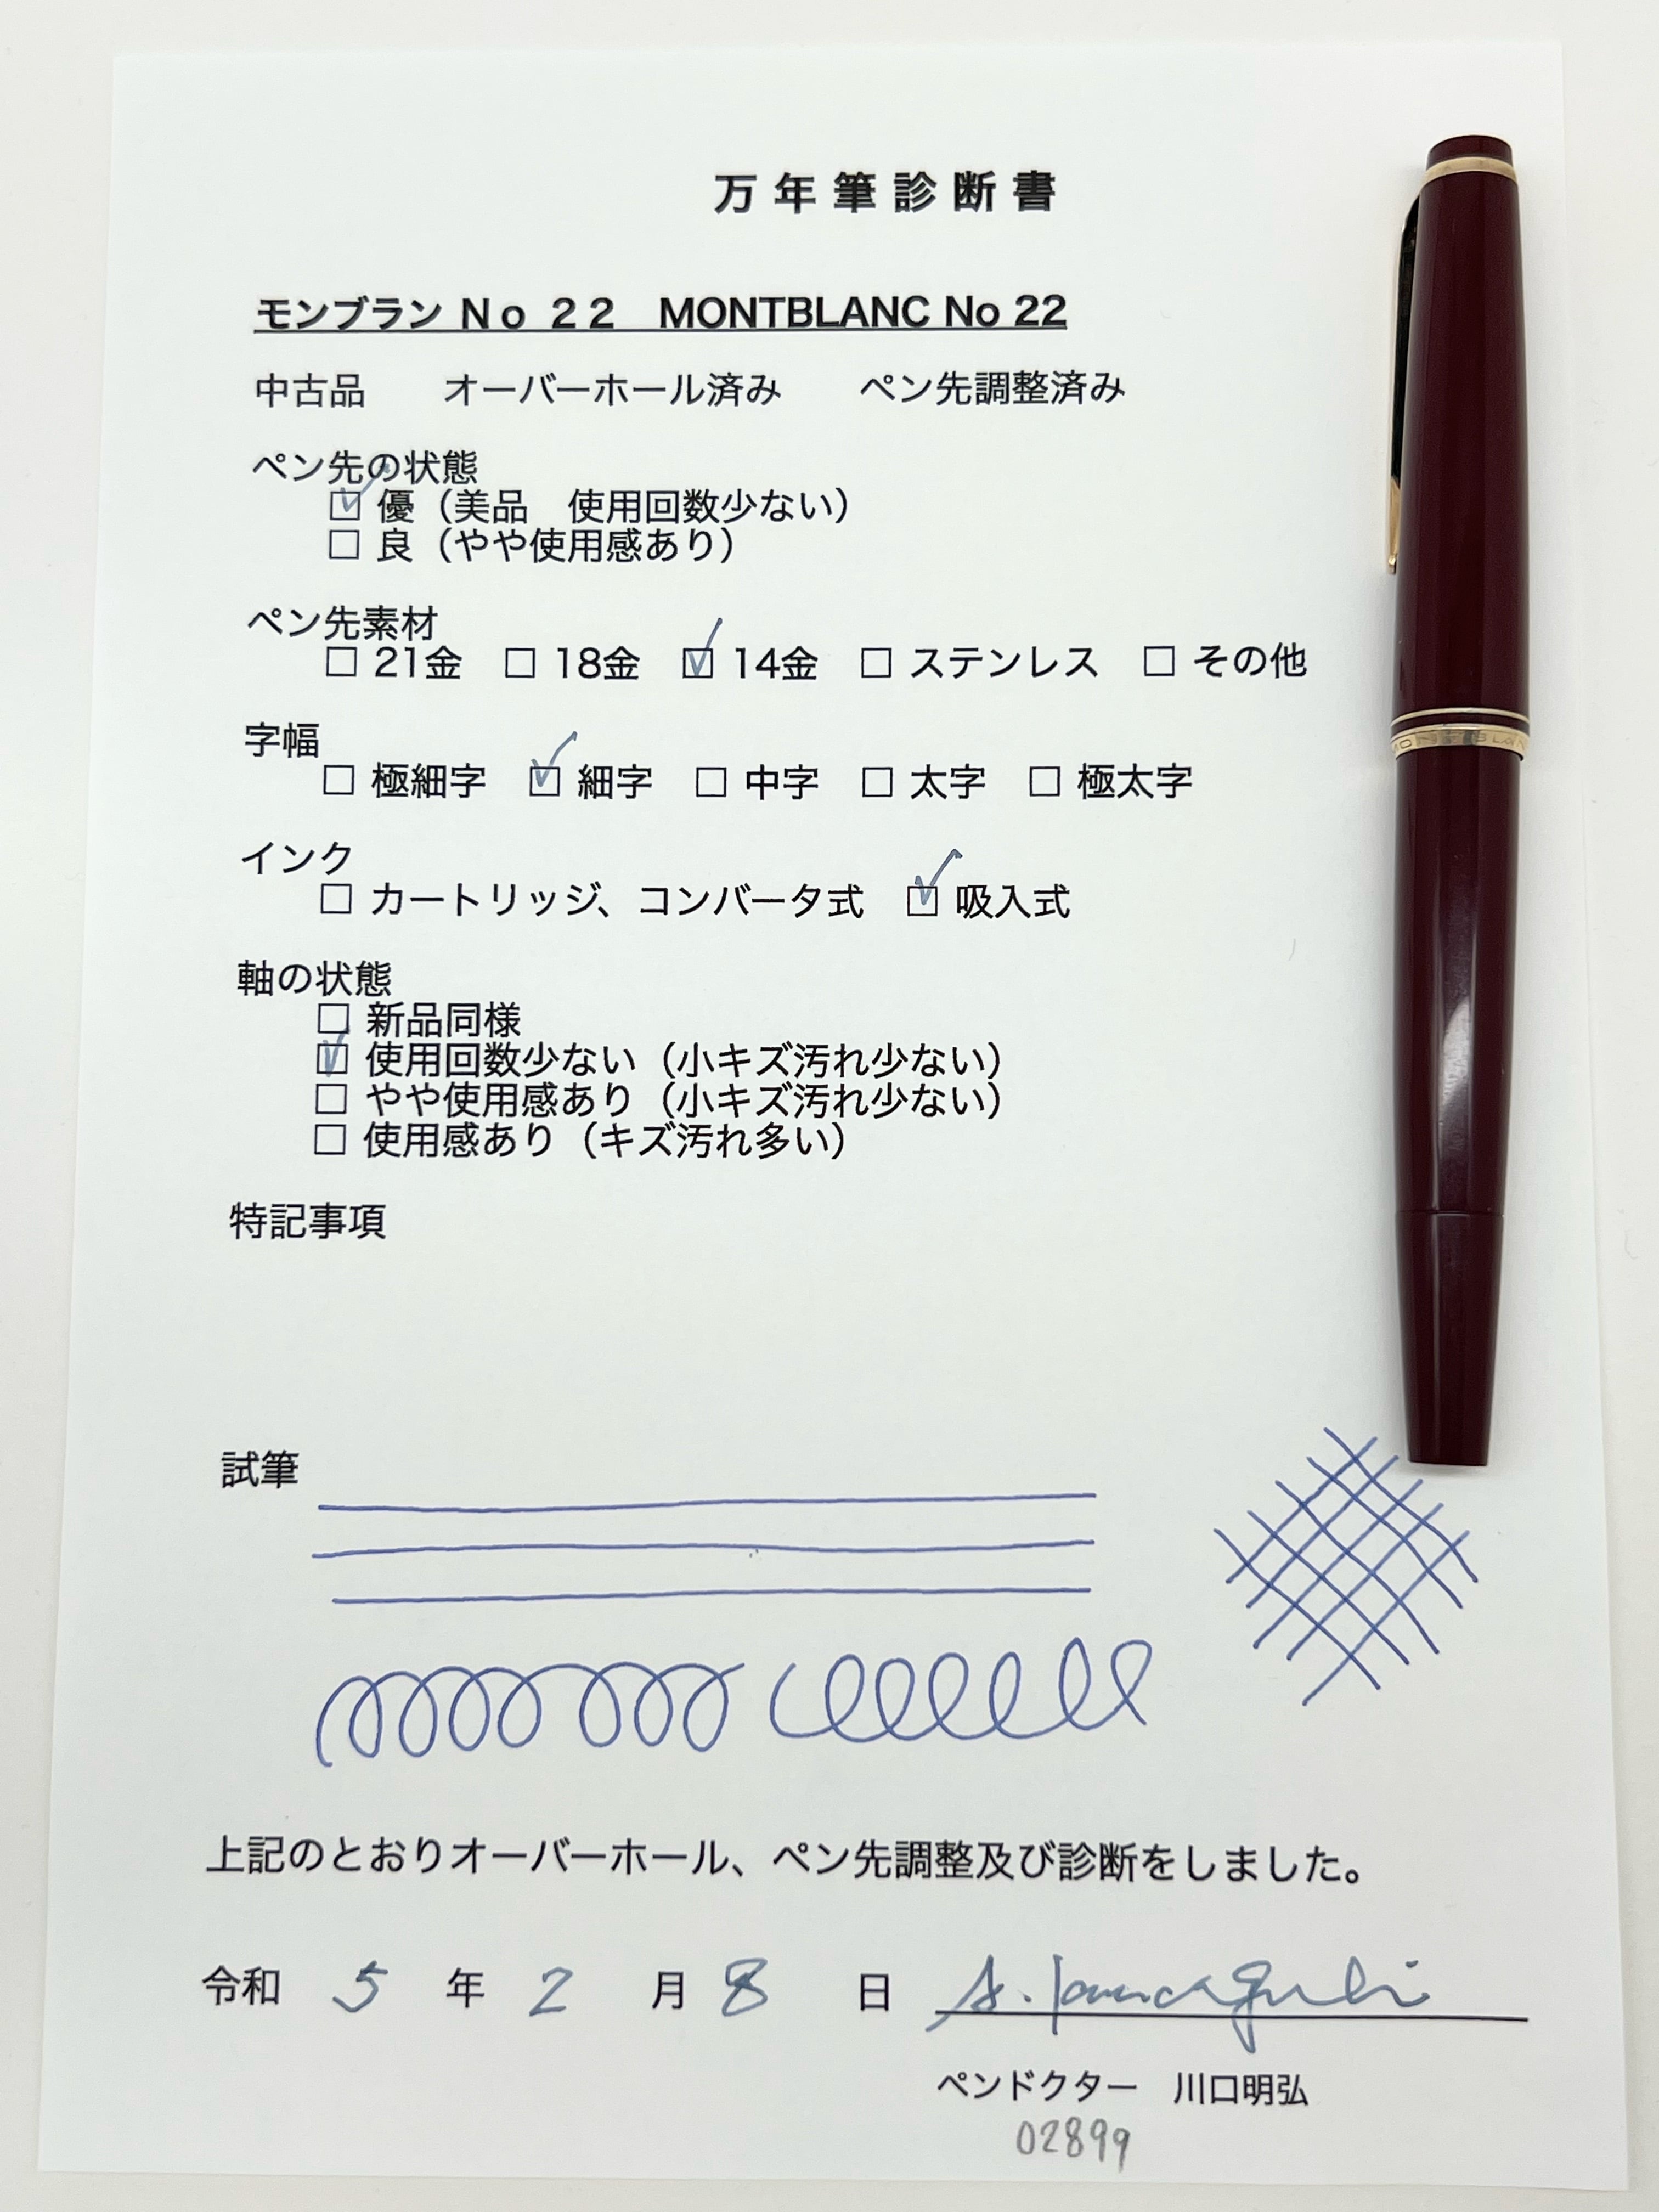 万年筆診断書
モンブラン Ｎｏ ２２　MONTBLANC No 22
中古品　　オーバーホール済み　　ペン先調整済み
ペン先の状態
☑ 優（美品　使用回数少ない）
☐ 良（やや使用感あり）
ペン先素材
☐ 21金　☐ 18金　☑ 14金　☐ ステンレス　☐ その他
字幅
☐ 極細字　☑ 細字　☐ 中字　☐ 太字　☐ 極太字
インク
☐ カートリッジ、コンバータ式　☑ 吸入式
軸の状態
☐ 新品同様
☑ 使用回数少ない（小キズ汚れ少ない）
☐ やや使用感あり（小キズ汚れ少ない）
☐ 使用感あり（キズ汚れ多い）
特記事項
試筆
上記のとおりオーバーホール、ペン先調整及び診断をしました。
令和 5 年 2 月 8 日
ペンドクター　川口明弘
02899